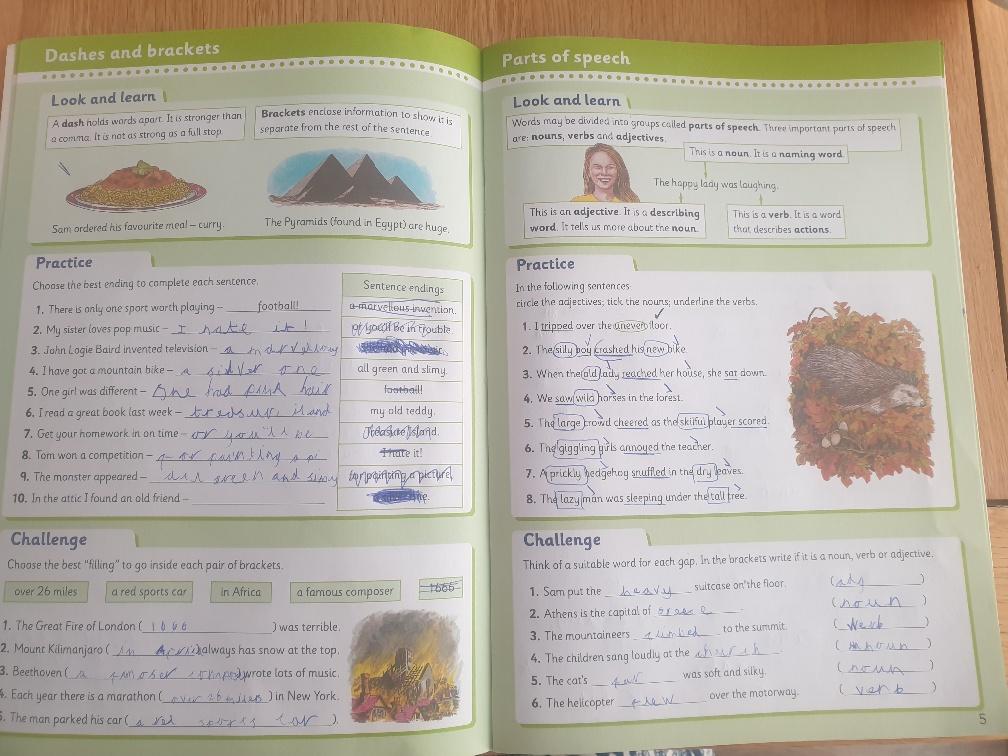 Dashes and brackets
Look and learn
A dash holds words apart. It is stronger than
a comma. It is not as strong as a full stop.
Brackets enclose information to show it is
separate from the rest of the sentence.
Sam ordered his favourite meal – curry.
The Pyramids (found in Egypt) are huge.
Practice
Choose the best ending to complete each sentence.
1. There is only one sport worth playing – football!
2. My sister loves pop music – I hate it!
3. John Logie Baird invented television – a
4. I have got a mountain bike – a silver one
5. One girl was different – one had pink hair
6. I read a great book last week –
7. Get your homework in on time – or you'll be
8. Tom won a competition –
9. The monster appeared – all green and
10. In the attic I found an old friend –
Sentence endings
a marvellous invention.
or you'll be in trouble.
all green and slimy.
football!
my old teddy.
Treasure Island.
I hate it!
for painting a picture.
Challenge
Choose the best "filling" to go inside each pair of brackets.
over 26 miles
a red sports car
in Africa
a famous composer
1666
1. The Great Fire of London (1666) was terrible.
2. Mount Kilimanjaro (in) always has snow at the top.
3. Beethoven (a) wrote lots of music.
4. Each year there is a marathon (over 26 miles) in New York.
5. The man parked his car (a red sports car).
Parts of speech
Look and learn
Words may be divided into groups called parts of speech. Three important parts of speech
are: nouns, verbs and adjectives.
This is a noun. It is a naming word.
The happy lady was laughing.
This is an adjective. It is a describing
word. It tells us more about the noun.
This is a verb. It is a word
that describes actions.
Practice
In the following sentences:
circle the adjectives; tick the nouns; underline the verbs.
1. I tripped over the uneven floor.
2. The silly boy crashed his new bike.
3. When the old lady reached her house, she sat down.
4. We saw wild horses in the forest.
5. The large crowd cheered as the skilful player scored.
6. The giggling girls annoyed the teacher.
7. A prickly hedgehog snuffled in the dry leaves.
8. The lazy man was sleeping under the tall tree.
Challenge
Think of a suitable word for each gap. In the brackets write if it is a noun, verb or adjective.
1. Sam put the heavy suitcase on the floor. (adj)
2. Athens is the capital of . (noun)
3. The mountaineers to the summit. (verb)
4. The children sang loudly at the . (noun)
5. The cat's was soft and silky. (noun)
6. The helicopter flew over the motorway. (verb)
5